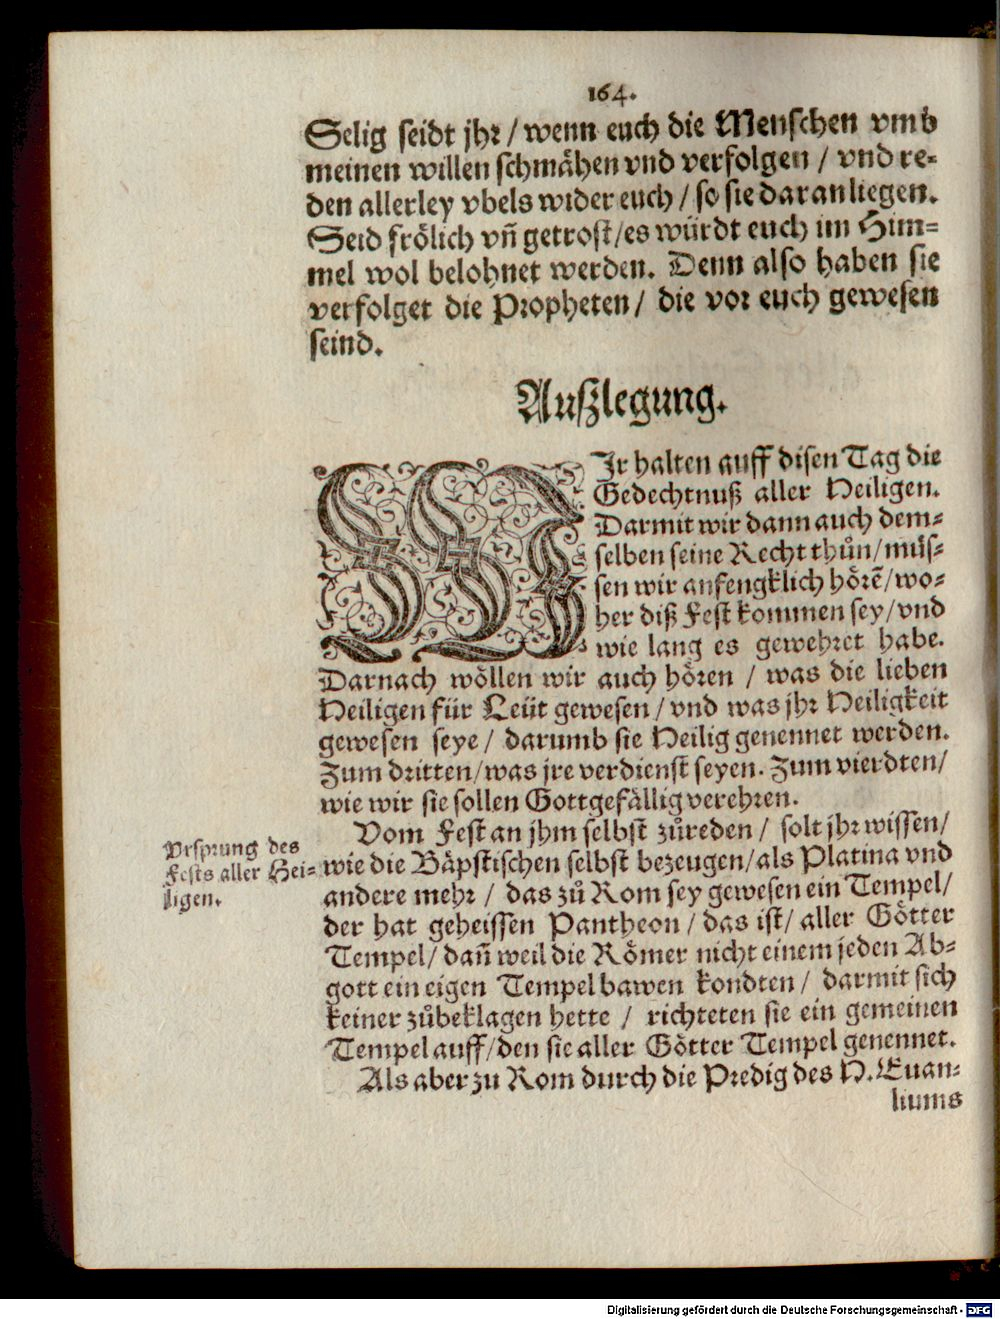 164.
Selig seidt jhr / wenn euch die Menschen vmb
meinen willen schmähen vnd verfolgen / vnd re-
den allerley vbels wider euch / so sie daran liegen.
Seid frölich vñ getrost / es würdt euch im Him-
mel wol belohnet werden. Denn also haben sie
verfolget die Propheten / die vor euch gewesen
seind.
Außlegung.
WIr halten auff disen Tag die
Gedechtnuß aller Heiligen.
Darmit wir dann auch dem-
selben seine Recht thůn / müs-
sen wir anfengklich hörē / wo-
her diß Fest kommen sey / vnd
wie lang es gewehret habe.
Darnach wöllen wir auch hören / was die lieben
Heiligen für Leüt gewesen / vnd was jhr Heiligkeit
gewesen seye / darumb sie Heilig genennet werden.
Zum dritten / was jre verdienst seyen. Zum vierdten /
wie wir sie sollen Gottgefällig verehren.
Vom Fest an jhm selbst zůreden / solt jhr wissen /
Vrsprung des
Fests aller Hei-
ligen.
wie die Bäpstischen selbst bezeugen / als Platina vnd
andere mehr / das zů Rom sey gewesen ein Tempel /
der hat geheissen Pantheon / das ist / aller Götter
Tempel / dañ weil die Römer nicht einem jeden Ab-
gott ein eigen Tempel bawen kondten / darmit sich
keiner zůbeklagen hette / richteten sie ein gemeinen
Tempel auff / den sie aller Götter Tempel genennet.
Als aber zu Rom durch die Predig des H. Euan-
liums
Digitalisierung gefördert durch die Deutsche Forschungsgemeinschaft - DFG